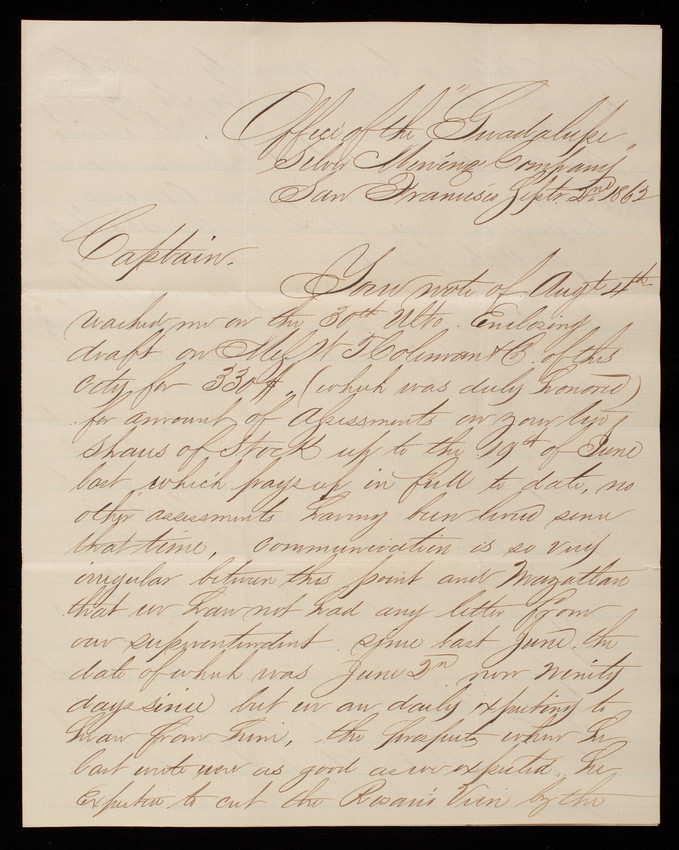 Office of the "Guadalupe
Silver Mining Company"
San Francisco Septr. 2nd 1862
Captain.
Your note of Augt 4th
reached me on the 30th Ulto. Enclosing
draft on Mess W T Coleman & Co. of this
City for 330$, (which was duly honored)
for amount of Assessments on your
Shares of Stock up to the 19th of June
last, which pays up in full to date, no
other assessments having been levied since
that time, communication is so very
irregular between this point and Mazatlan
that we have not had any letter from
our superintendent since last June, the
date of which was June 2nd now ninety
days since but we are daily expecting to
hear from him, the prospects when he
last wrote were as good as we expected. he
expected to cut the Rosario Vein by the